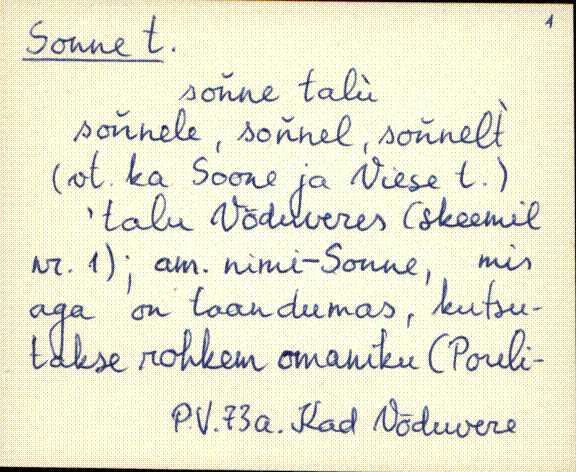 1
Sonne t.
soňne talù
soňnele, soňnel, soňnelt̀
(vt. ka Soone ja Viese t.)
'talu Võduveres (skeemil
nr. 1); am. nimi-Sonne, mis
aga on taandumas, kutsu-
takse rohkem omaniku (Pouli-
P.V.73a. Kad Võduvere